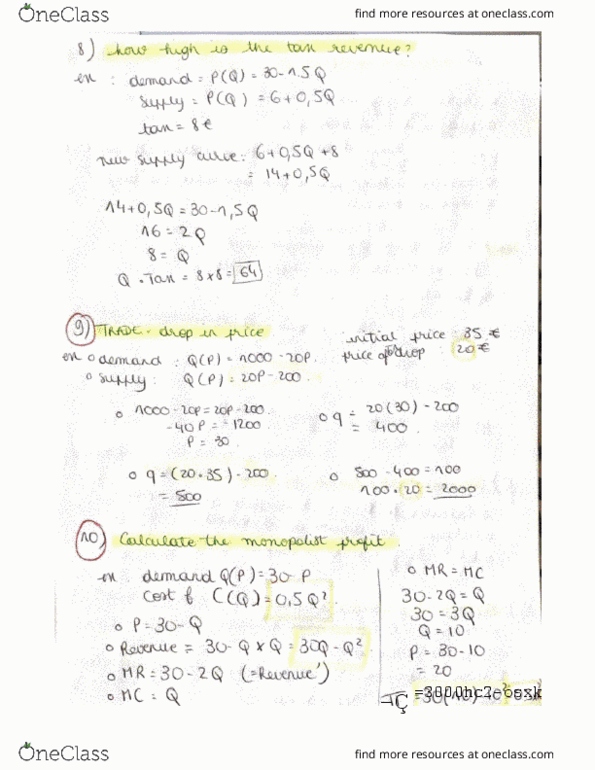 OneClass
find more resources at oneclass.com
8) how high is the tax revenue?
ex : demand = P(Q) = 30-1.5Q
supply = P(Q) = 6+0,5Q
tax = 8€
new supply curve: 6+0,5Q+8
= 14+0,5Q
14+0,5Q = 30-1,5Q
16 = 2Q
8 = Q
Q · Tax = 8x8 = 64
9) TRADE - drop in price
initial price : 35 €
price drop : 20 €
ex o demand : Q(P) = 1000 - 20P.
o supply : Q(P) = 20P - 200.
o 1000 - 20P = 20P - 200.
-40P = -1200
P = 30
o q = 20(30) - 200
= 400.
o q = (20 · 35) - 200
= 500
o 500 - 400 = 100
100 · 20 = 2000
10) Calculate the monopolist profit.
ex : demand Q(P) = 30-P
cost f C(Q) = 0,5Q²
o P = 30 - Q
o Revenue = 30 - Q x Q = 30Q - Q²
o MR = 30 - 2Q (= Revenue')
o MC = Q
o MR = MC
30 - 2Q = Q
30 = 3Q
Q = 10
P = 30 - 10
= 20
OneClass
find more resources at oneclass.com